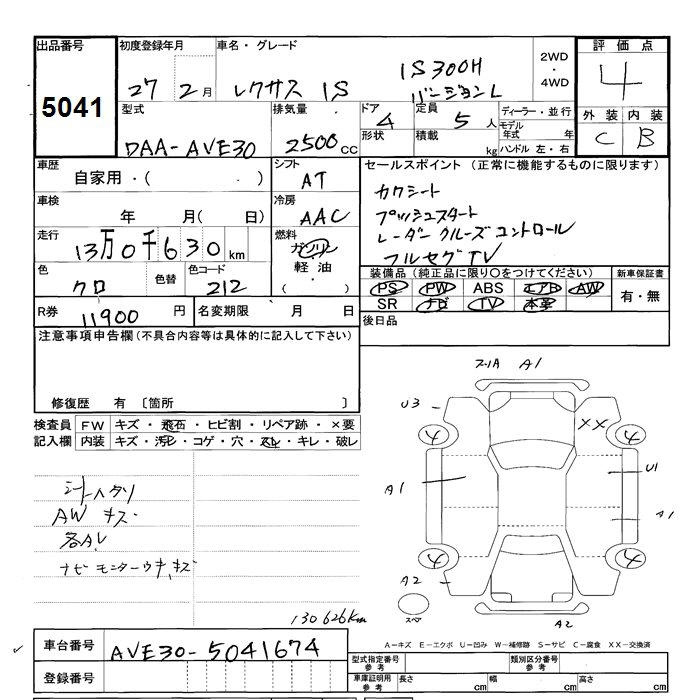 出品番号 初度登録年月 車名・グレード 2WD・4WD 評価点
5041 27年 2月 レクサス IS IS300H バージョンL 4
型式 排気量 ドア 定員 ディーラー・並行 外装 内装
DAA-AVE30 2500CC 4 5人 モデル年式 年 C B
形状 積載 kg ハンドル 左・右
車歴 シフト セールスポイント(正常に機能するものに限ります)
自家用・( ) AT カワシート
車検 冷房 プッシュスタート
年 月(日) AAC レーダークルーズコントロール
走行 燃料 フルセグTV
13万0千630km ガソリン
色 色替 色コード 軽油 装備品(純正品に限り○をつけてください) 新車保証書
クロ 212 ・( ) PS PW ABS エアB AW 有・無
R券 11900円 名変期限 月 日 SR ナビ TV 本革
後日品
注意事項申告欄(不具合内容等は具体的に記入して下さい)
修復歴 有 〔箇所 〕
検査員 FW キズ・飛石・ヒビ割・リペア跡・×要
記入欄 内装 キズ・汚レ・コゲ・穴・スレ・キレ・破レ
シートヘタリ
AW キズ
各AL
ナビモニターウキ、キズ
130626km
A1
U3 XX
4 4
A1 U1
A1
4 4
A2
スペア A2
A-キズ E-エクボ U-凹み W-補修跡 S-サビ C-腐食 XX-交換済
車台番号 AVE30-5041674
型式指定番号 参考 類別区分番号 参考
登録番号 車庫証明用 参考 長さ cm 幅 cm 高さ cm